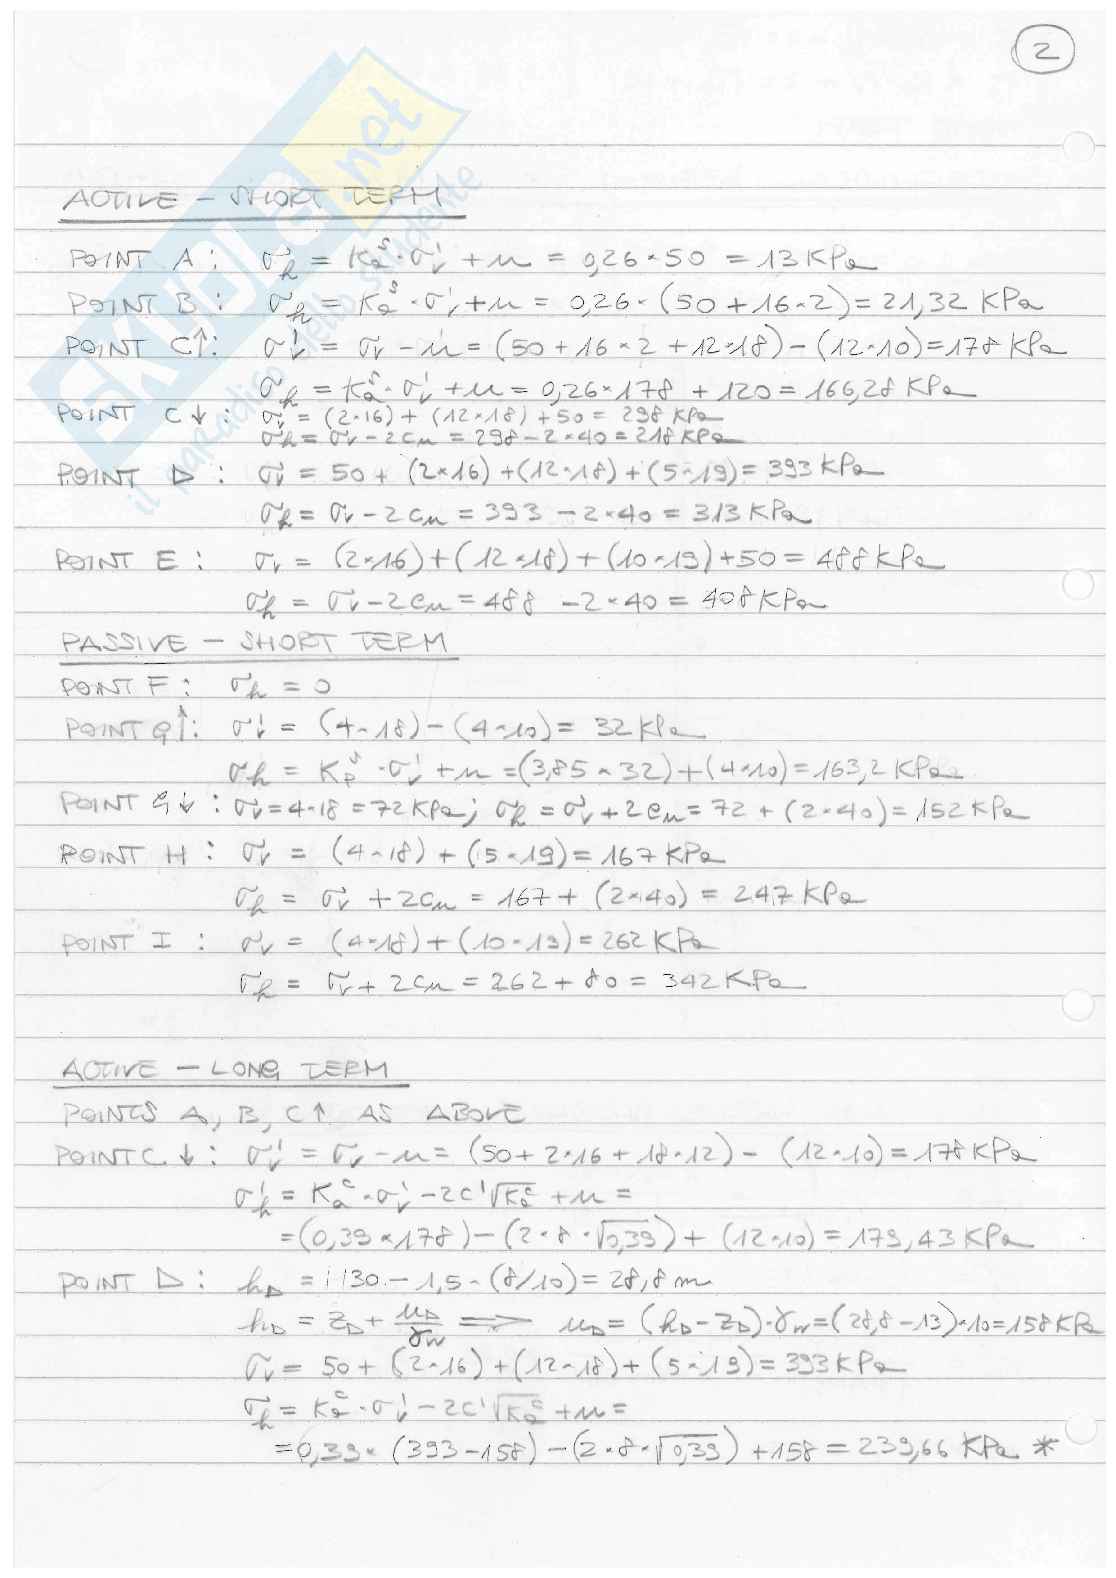 2
SKUOLA.net
il paradiso dello studente
ACTIVE - SHORT TERM
POINT A: σh = Kaˢ·σ'v + u = 0,26×50 = 13 KPa
POINT B: σh = Kaˢ·σ'v + u = 0,26×(50+16×2) = 21,32 KPa
POINT C↑: σ'v = σv - u = (50+16×2+12×18) - (12×10) = 178 KPa
σh = Kaˢ·σ'v + u = 0,26×178 + 120 = 166,28 KPa
POINT C↓: σv = (2×16) + (12×18) + 50 = 298 KPa
σh = σv - 2cu = 298 - 2×40 = 218 KPa
POINT D: σv = 50 + (2×16) + (12×18) + (5×19) = 393 KPa
σh = σv - 2cu = 393 - 2×40 = 313 KPa
POINT E: σv = (2×16) + (12×18) + (10×19) + 50 = 488 KPa
σh = σv - 2cu = 488 - 2×40 = 408 KPa
PASSIVE - SHORT TERM
POINT F: σh = 0
POINT G↑: σ'v = (4×18) - (4×10) = 32 KPa
σh = Kpˢ·σ'v + u = (3,85×32) + (4×10) = 163,2 KPa
POINT G↓: σv = 4×18 = 72 KPa; σh = σv + 2cu = 72 + (2×40) = 152 KPa
POINT H: σv = (4×18) + (5×19) = 167 KPa
σh = σv + 2cu = 167 + (2×40) = 247 KPa
POINT I: σv = (4×18) + (10×19) = 262 KPa
σh = σv + 2cu = 262 + 80 = 342 KPa
ACTIVE - LONG TERM
POINTS A, B, C↑ AS ABOVE
POINT C↓: σ'v = σv - u = (50+2×16+18×12) - (12×10) = 178 KPa
σ'h = Kaᶜ·σ'v - 2c'√Kaᶜ + u =
= (0,39×178) - (2×8×√0,39) + (12×10) = 179,43 KPa
POINT D: hD = 30 - 1,5×(8/10) = 28,8 m
hD = zD + uD/γw ⟹ uD = (hD - zD)·γw = (28,8-13)×10 = 158 KPa
σv = 50 + (2×16) + (12×18) + (5×19) = 393 KPa
σh = Kaᶜ·σ'v - 2c'√Kaᶜ + u =
= 0,39×(393-158) - (2×8×√0,39) + 158 = 239,66 KPa *